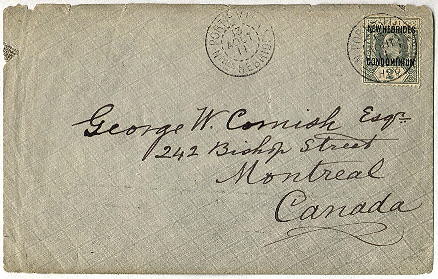 PORT-VILA
12
AOUT
11
HEBRIDES
NEW HEBRIDES
CONDOMINIUM
George W. Cornish Esqr.
242 Bishop Street
Montreal
Canada